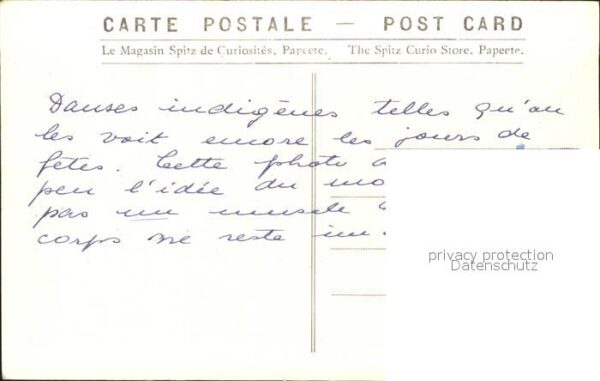 CARTE POSTALE — POST CARD
Le Magasin Spitz de Curiosités, Papeete. The Spitz Curio Store, Papeete.
Danses indigènes telles qu'on
les voit encore les jours de
fêtes. Cette photo
peu l'idée du
pas un muscle
corps ne reste
privacy protection
Datenschutz